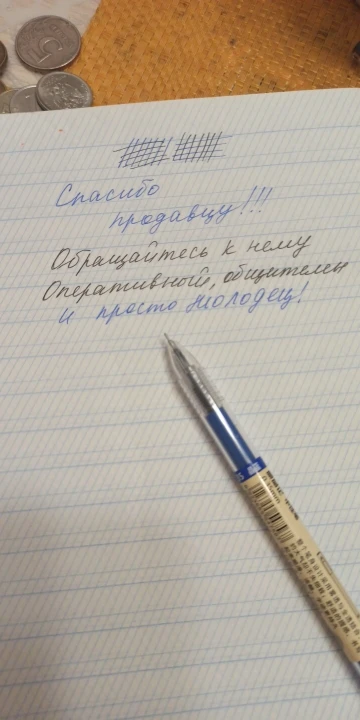 Спасибо
продавцу!!!
Обращайтесь к нему
Оперативный, общителен
и просто Молодец!